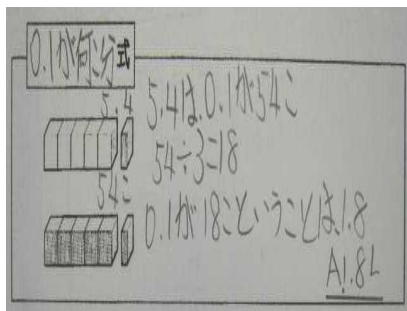 0.1が何こ分式
5.4
5.4は0.1が54こ
54÷3=18
54こ
0.1が18こということは1.8
A1.8L